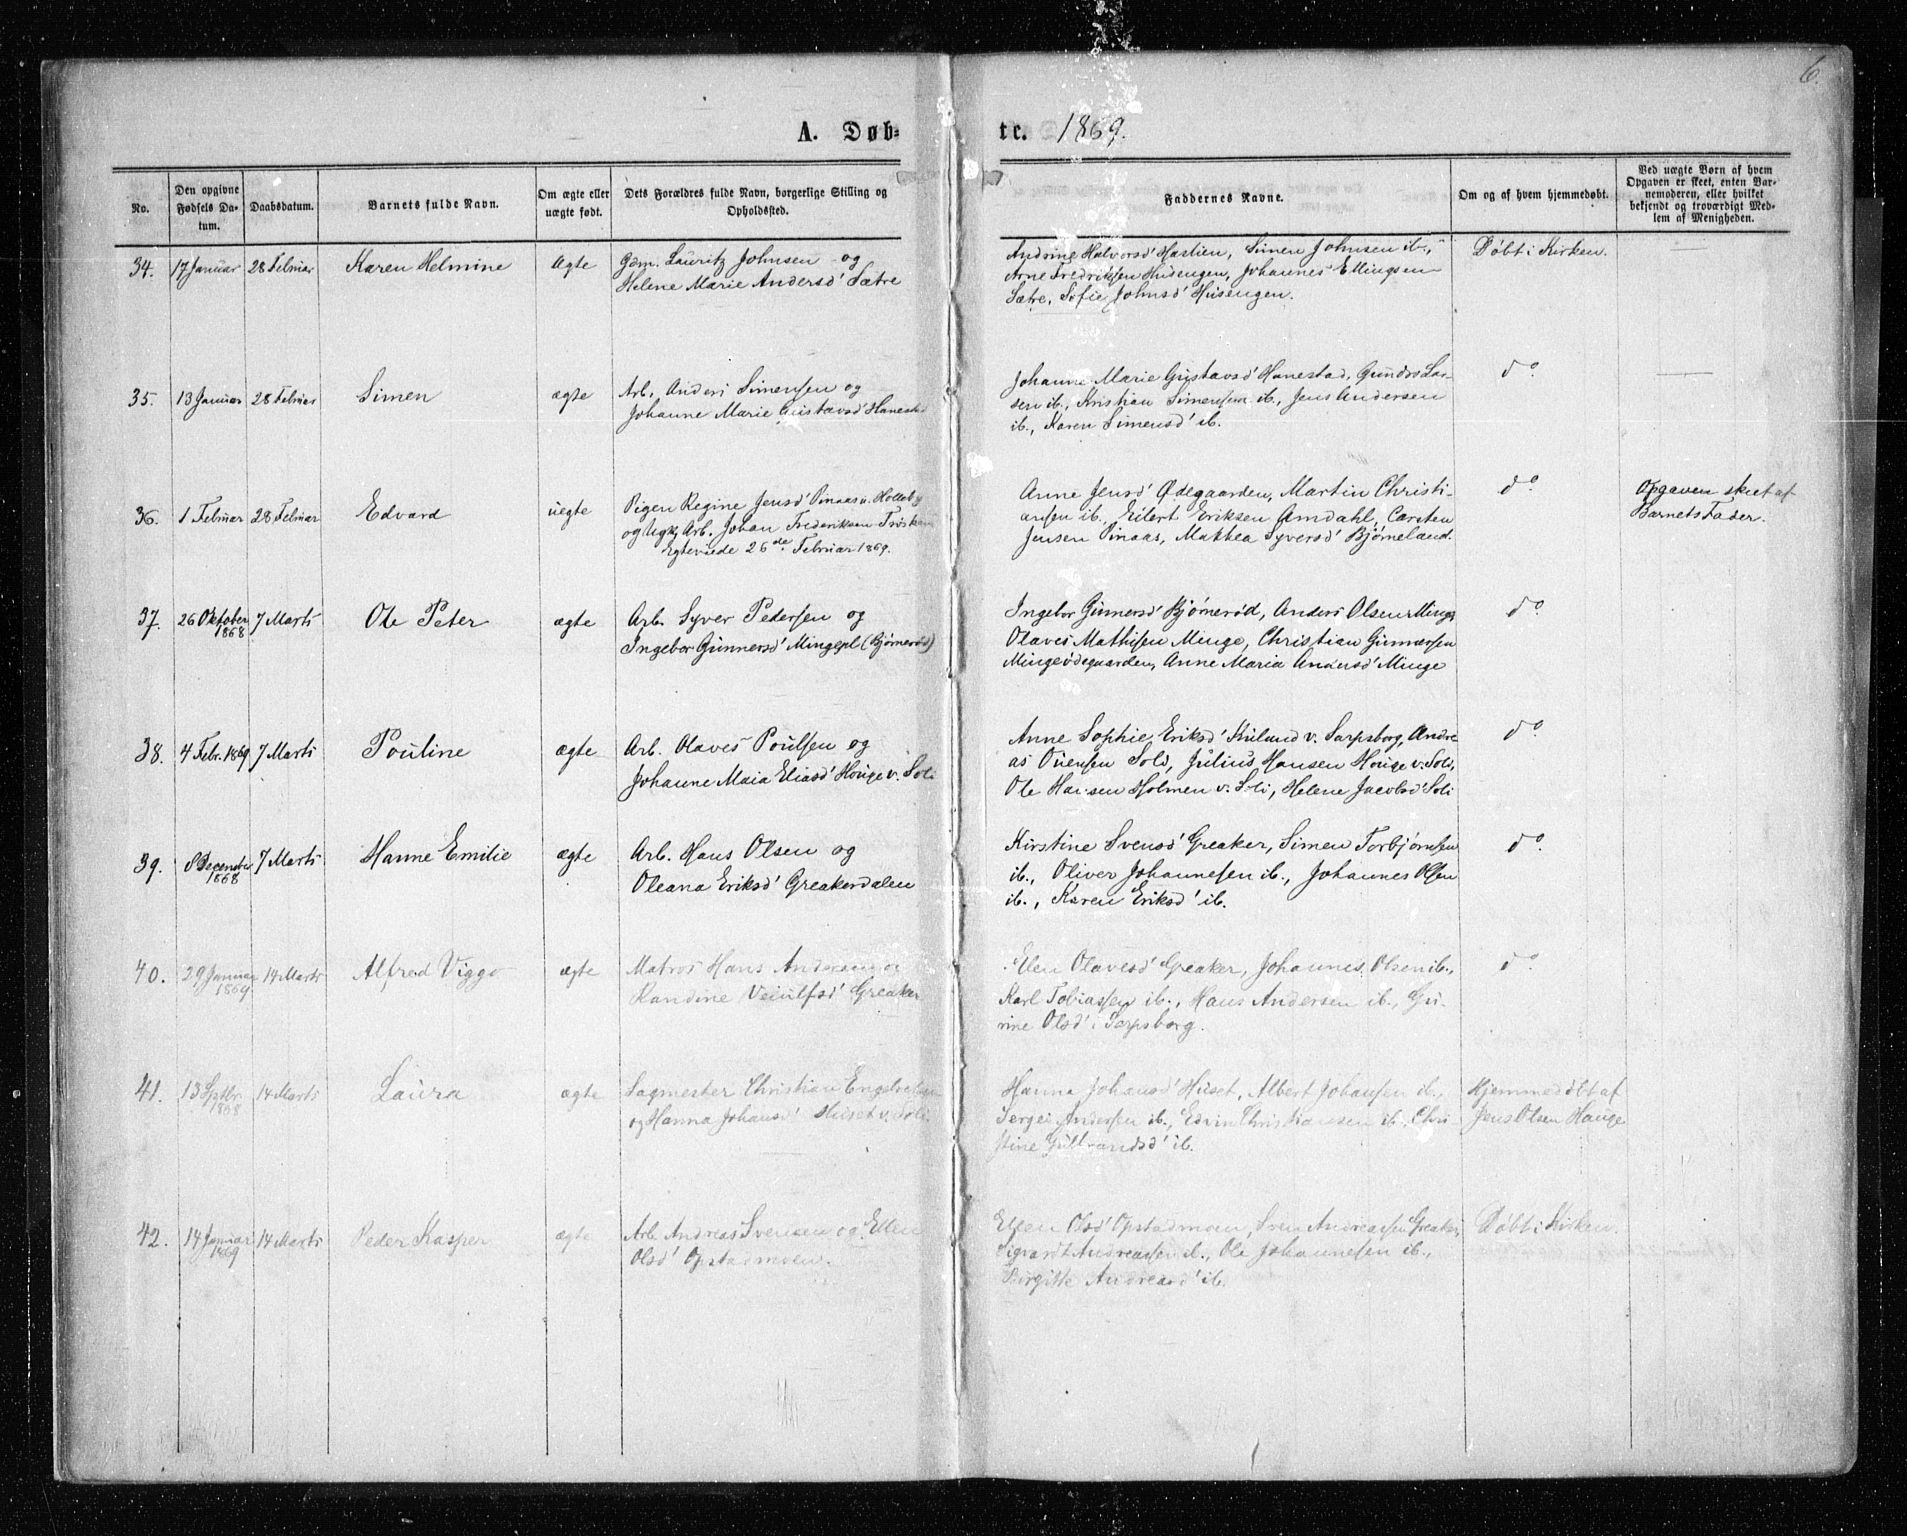 6.
A. Døb- te. 1869.
No.
Den opgivne Fødsels Da-tum.
Daabsdatum.
Barnets fulde Navn.
Om ægte eller uægte født.
Dets Forældres fulde Navn, borgerlige Stilling og Opholdssted.
Faddernes Navne.
Om og af hvem hjemmedøbt.
Ved uægte Børn af hvem
Opgaven er skeet, enten Bar-
nemoderen, eller hvilket
bekjendt og troværdigt Med-
lem af Menigheden.
34. 17 Januar 28 Februar Karen Helmine Ægte
Gdm. Lauritz Johnsen og
Helene Marie Andersd' Sætre
Andrine Halvorsd' Hastien, Simen Johnsen ib.,
Arne Fredriksen Husengen, Johannes Ellingsen
Sætre, Sofie Johnsd' Husengen.
Døbt i Kirken.
35. 13 Januar 28 Februar Simen ægte
Arb. Anders Simensen og
Johanne Marie Gustavsd' Hanestad
Johanne Marie Gustavsd' Hanestad, Gunder Lar-
sen ib., Kristian Simensen ib., Jens Andersen
ib., Karen Simensd' ib.
do.
36. 1 Februar 28 Februar Edvard uegte
Pigen Regine Jensd' Pinaas u. Holleby
og Ugk. Arb. Johan Frederiksen
Egteviede 26de Februar 1869.
Anne Jensd' Ødegaarden, Martin Christi-
ansen ib., Eilert Eriksen Amdahl, Carsten
Jensen Pinaas, Mathea Syversd' Bjørneland.
do.
Opgaven skeet af
Barnets Fader.
37. 26 Oktober 1868 7 Marts Ole Peter ægte
Arb. Syver Pedersen og
Ingebor Gunnersd' Mingepl (Bjørnerød)
Ingebor Gunnersd' Bjørnerød, Anders Olsen Minge,
Olaves Mathisen Minge, Christian Gunnersen
Mingeødegaarden, Anne Maria Andersd' Minge
do.
38. 4 Febr. 1869 7 Marts Pouline ægte
Arb. Olaves Poulsen og
Johanne Maia Eliasd' Houge v. Soli
Anne Sophie Eriksd' Kulund v. Sarpsborg, Andre
as Ouensen Soli, Julius Hansen Houge v. Soli,
Ole Hansen Holmen v. Soli, Helene Jacobsd' Soli
do.
39. 8 December 1868 7 Marts Hanne Emilie ægte
Arb. Hans Olsen og
Oleana Eriksd' Greakerdalen
Kirstine Svensd' Greaker, Simen Torbjørnsen
ib., Oliver Johannesen ib., Johannes Olsen
ib., Karen Eriksd' ib.
do.
40. 29 Januar 1869 14 Marts Alfred Viggo ægte
Matros Hans Andersen og
Randine Veiulfsd' Greaker
Elen Olavesd' Greaker, Johannes Olsen ib.,
Karl Tobiassen ib., Hans Andersen ib., Gu-
rine Olsd' i Sarpsborg.
do.
41. 13 Septbr. 1868 14 Marts Laura ægte
Sagmester Christian Engebretsen
og Hanna Johansd' Huset v. Soli
Hanna Johansd' Huset, Albert Johansen ib.,
Andersen ib., Edvin Christiansen ib., Chri-
stine Gulbrandsd' ib.
Hjemmedöbt af
Jens Olsen Hauge
42. 14 Januar 1869 14 Marts Peder Kasper ægte
Arb. Andreas Svensen og Ellen
Olsd' Opstadmoen.
Ellen Olsd' Opstadmoen, Sven Andreassen Greaker,
Sigvardt Andreassen ib., Ole Johannesen ib.,
Birgitte Andreasd' ib.
Døbt i Kirken.